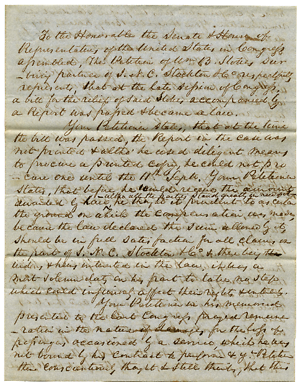 To the Honorable the Senate & House of
Representatives of the United States in Congress
assembled, The Petition of Wm B. Stokes Sur-
viving partner of J. N. C. Stockton & Co respectfully
represents, that at the late session of Congress,
a bill for the relief of said Stokes, accompanied by
a Report was passed & became a law.
Your Petitioner states, that at the time
the bill was passed, the Report in the case was
not printed & altho' he used diligent means
to procure a printed copy, he could not pro-
cure one until the 11th Septr. Your Petitioner
states, that before he could receive the amount
awarded by law,
the ground on which the compensation was made
because the law declared the sum allowed
should be in full satisfaction for all claims on
the part of J. N. C. Stockton & Co &
in the Law,
to take no step,
which could injuriously affect their rights
Your Petitioner in his memorial
presented to the last Congress, prayed remune-
ration in the nature of damages, for the loss of
passengers occasioned by a service which he was
not bound by his contract to perform & yr Petitioner
then conscientiously thought & still thinks, that this